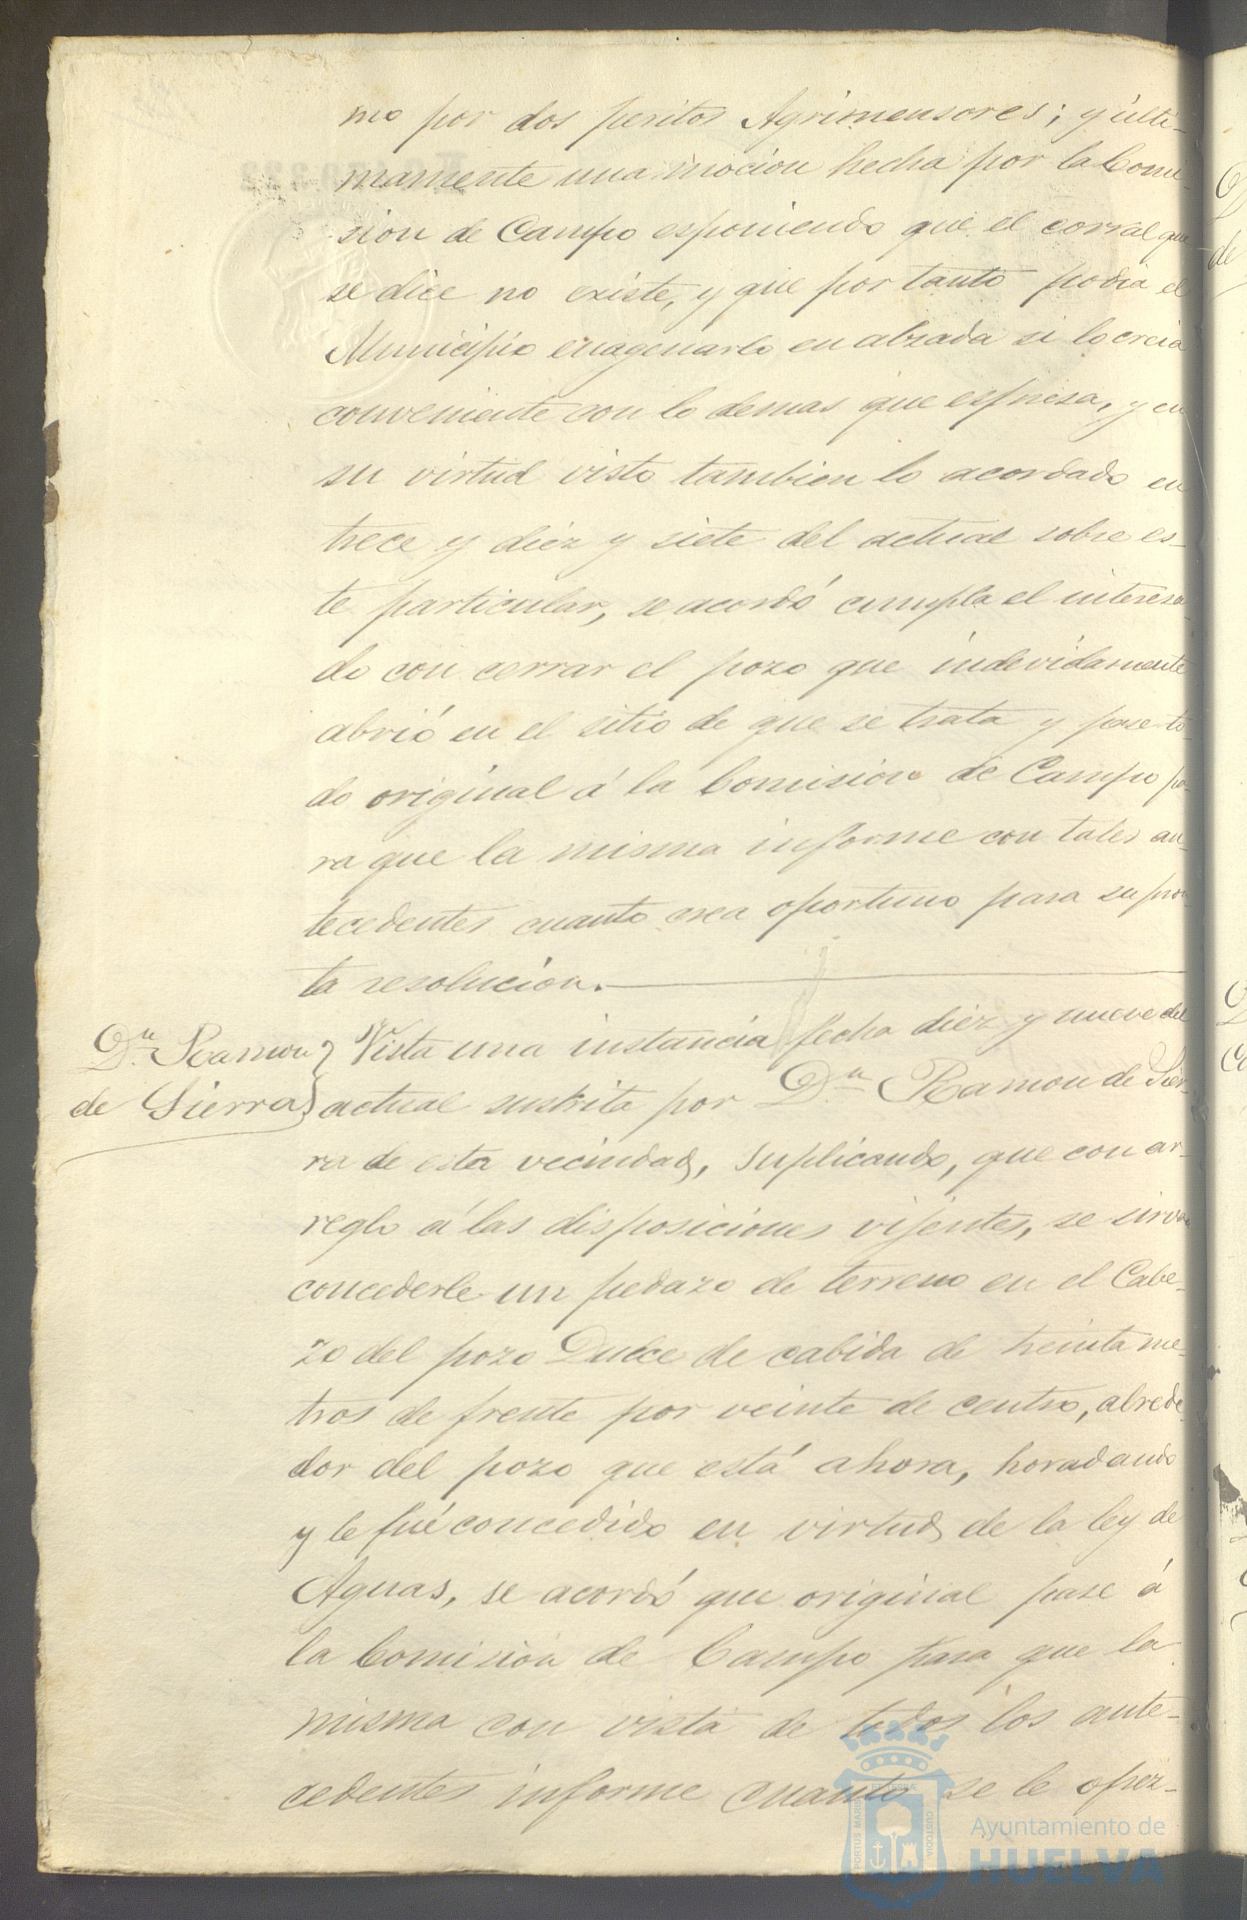 mo por dos peritos Agrimensores; y ulti-
mamente una mocion hecha por la Comi-
sion de Campo esponiendo que el corral que
se dice no existe, y que por tanto podia el
Municipio enagenarlo en alzada si lo creia
conveniente con lo demas que espresa, y en
su virtud visto tambien lo acordado en
trece y diez y siete del actual sobre es-
te particular, se acordó cumpla el interesa-
do con cerrar el pozo que indevidamente
abrió en el sitio de que se trata y pase to-
do original á la Comision de Campo pa-
ra que la misma informe con tales an-
tecedentes cuanto crea oportuno para su pron
ta resolucion.
Dn. Ramon
de Sierra
Vista una instancia fecha diez y nueve del
actual suscrita por Dn. Ramon de Sier-
ra de esta vecindad, suplicando, que con ar-
reglo á las disposiciones vijentes, se sirva
concederle un pedazo de terreno en el Cabe-
zo del pozo Dulce de cabida de treinta me-
tros de frente por veinte de centro, alrede-
dor del pozo que está ahora, horadando
y le fué concedido en virtud de la ley de
Aguas, se acordó que original pase á
la Comision de Campo para que la
misma con vista de todos los ante-
cedentes informe cuanto se le ofrez-
PORTUS MARIS ET TERRAE CUSTODIA
Ayuntamiento de
HUELVA